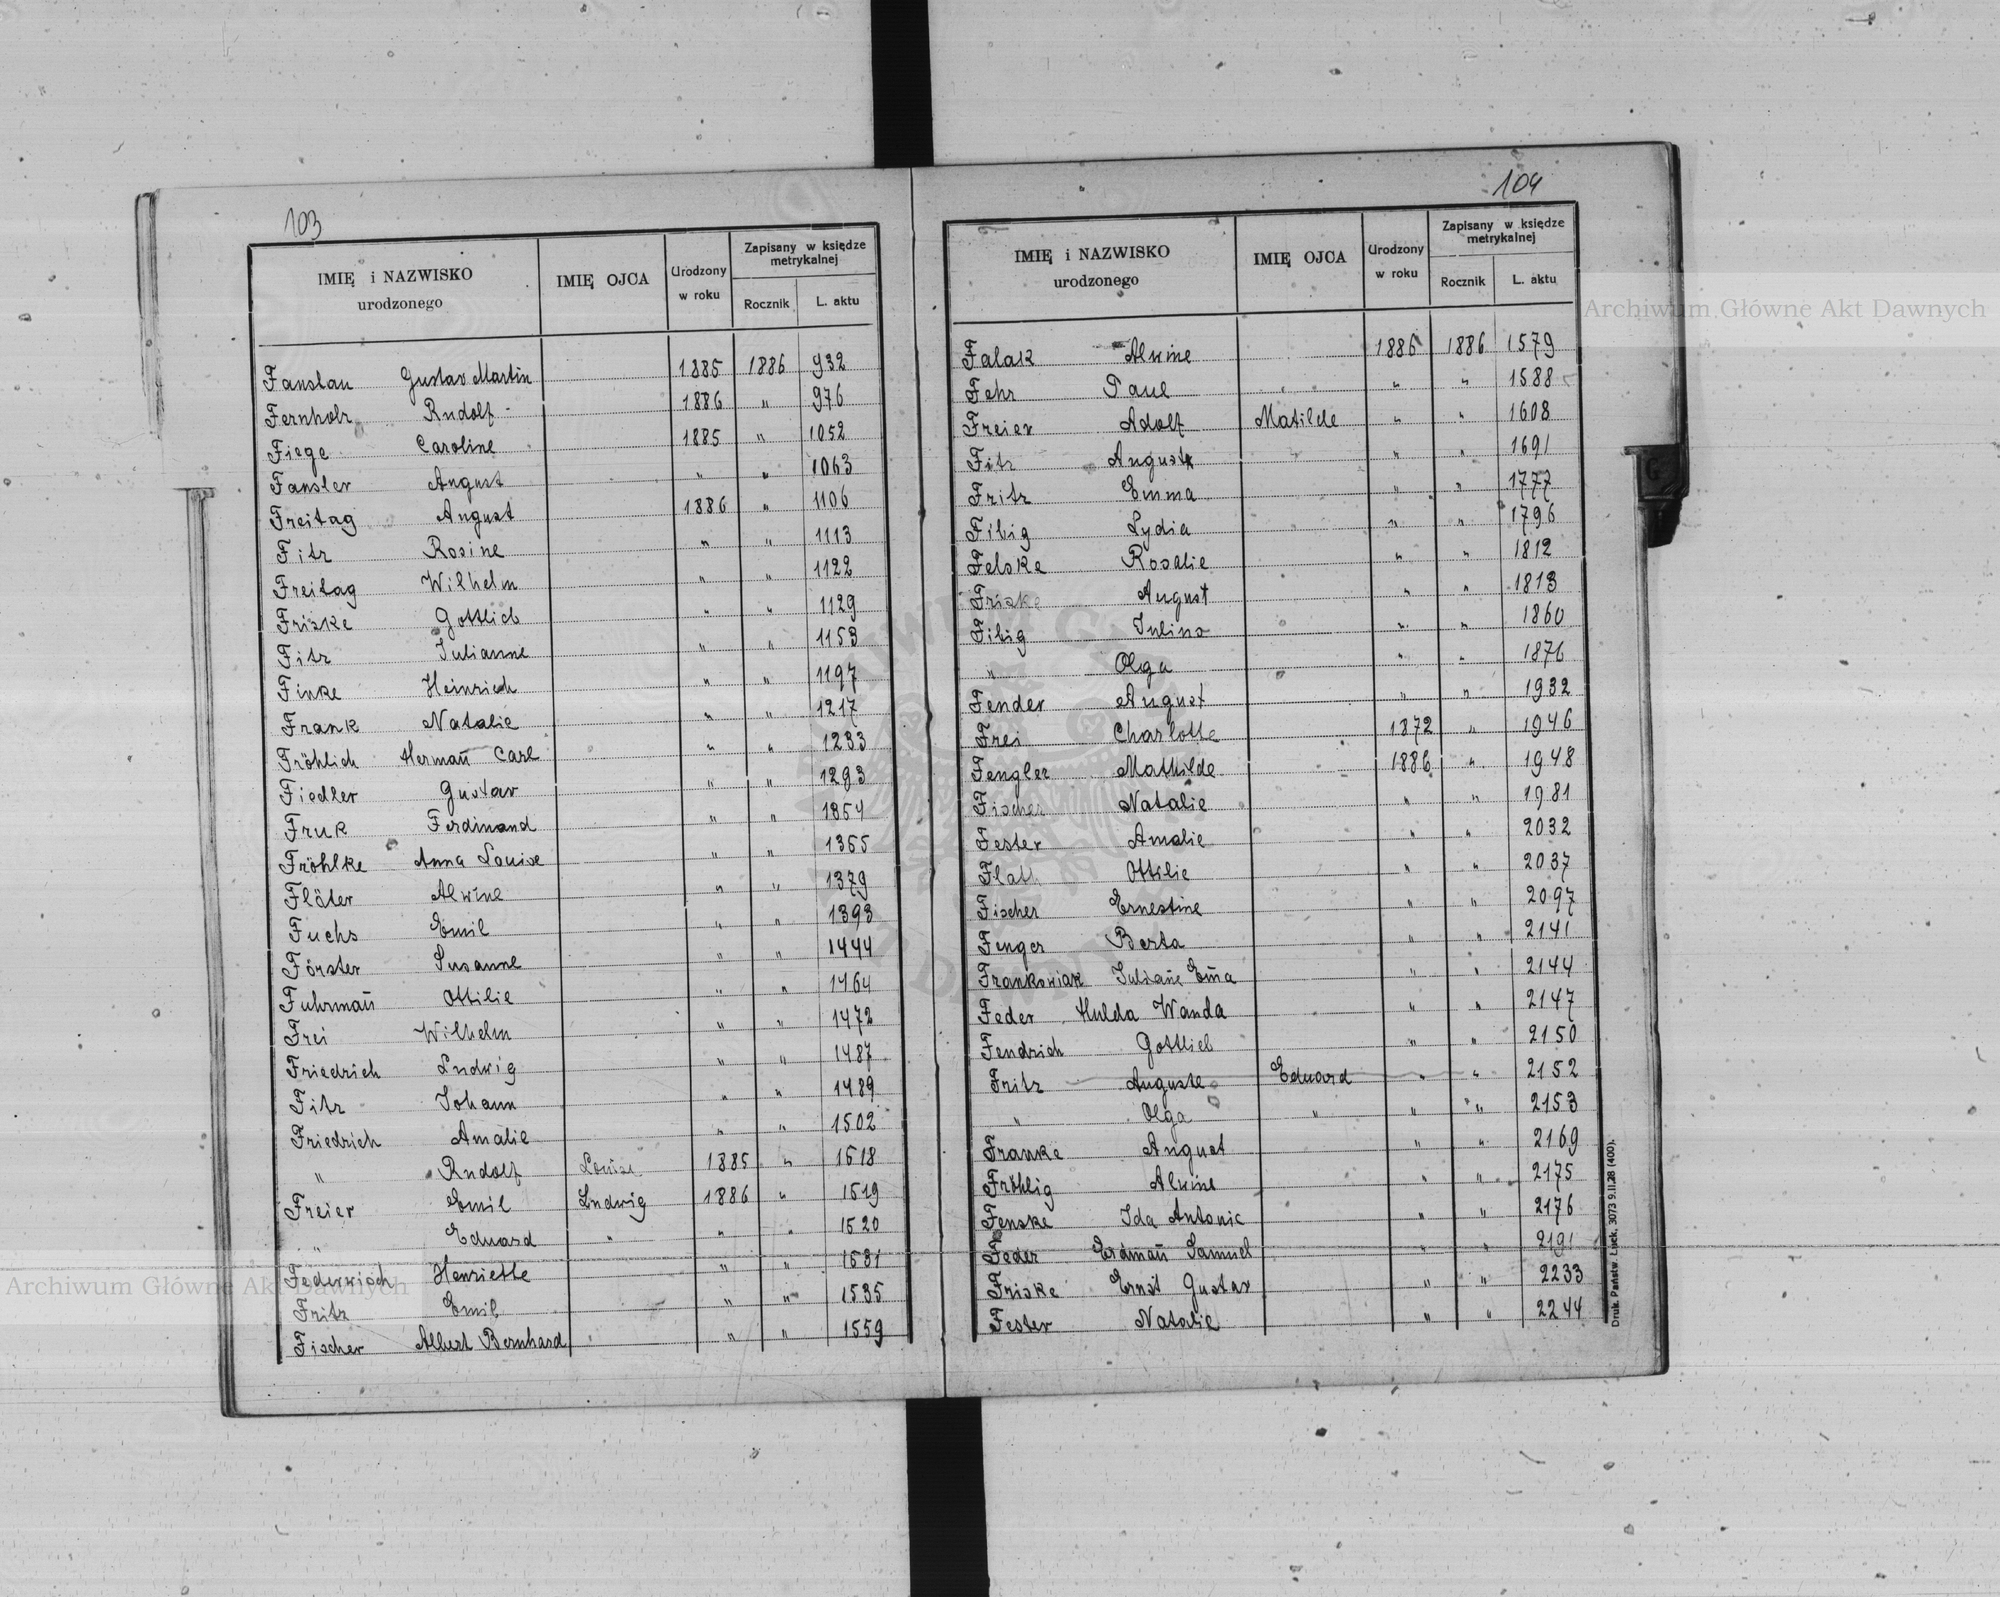 103
IMIĘ i NAZWISKO urodzonego IMIĘ OJCA Urodzony w roku Zapisany w księdze metrykalnej Rocznik L. aktu
Fanslau Gustav Martin 1885 1886 932
Fernholz Rudolf 1886 " 976
Fiege Caroline 1885 " 1052
Fansler August " " 1063
Freitag August 1886 " 1106
Fitz Rosine " " 1113
Freitag Wilhelm " " 1122
Friske Gottlieb " " 1129
Fitz Julianne " " 1153
Finke Heinrich " " 1197
Frank Natalie " " 1217
Fröhlich Hermañ Carl " " 1233
Fiedler Gustav " " 1293
Fruk Ferdinand " " 1354
Fröhlke Anna Louise " " 1365
Flöter Alwine " " 1379
Fuchs Emil " " 1393
Förster Susanne " " 1444
Fuhrmañ Ottilie " " 1464
Frei Wilhelm " " 1472
Friedrich Ludwig " " 1487
Fitz Johann " " 1489
Friedrich Amalie " " 1502
" Rudolf Louise 1885 " 1518
Freier Emil Ludwig 1886 " 1519
" Eduard " " " 1520
Federwisch Henriette " " 1531
Fritz Emil " " 1535
Fischer Albert Bernhard " " 1559
104
IMIĘ i NAZWISKO urodzonego IMIĘ OJCA Urodzony w roku Zapisany w księdze metrykalnej Rocznik L. aktu
Falak Alwine 1886 1886 1579
Fehr Paul " " 1588
Freier Adolf Matilde " " 1608
Fitz August " " 1691
Fritz Emma " " 1777
Fibig Lydia " " 1796
Felske Rosalie " " 1812
Friske August " " 1813
Fibig Julius " " 1860
" Olga " " 1876
Fender August " " 1932
Frei Charlotte 1872 " 1946
Fengler Mathilde 1886 " 1948
Fischer Natalie " " 1981
Fester Amalie " " 2032
Flath Ottilie " " 2037
Fischer Ernestine " " 2097
Fenger Berta " " 2141
Frankowiak Juliañe Em̃a " " 2144
Feder Hulda Wanda " " 2147
Fendrich Gottlieb " " 2150
Fritz Auguste Eduard " " 2152
" Olga " " " 2153
Franke August " " 2169
Fröhlig Alwine " " 2175
Fenske Ida Antonie " " 2176
Feder Erdmañ Samuel " " 2191
Friske Ernst Gustav " " 2233
Fester Natalie " " 2244
Druk. Państw. Łuck. 3073 9.II.28 (400).
Archiwum Główne Akt Dawnych
Archiwum Główne Akt Dawnych